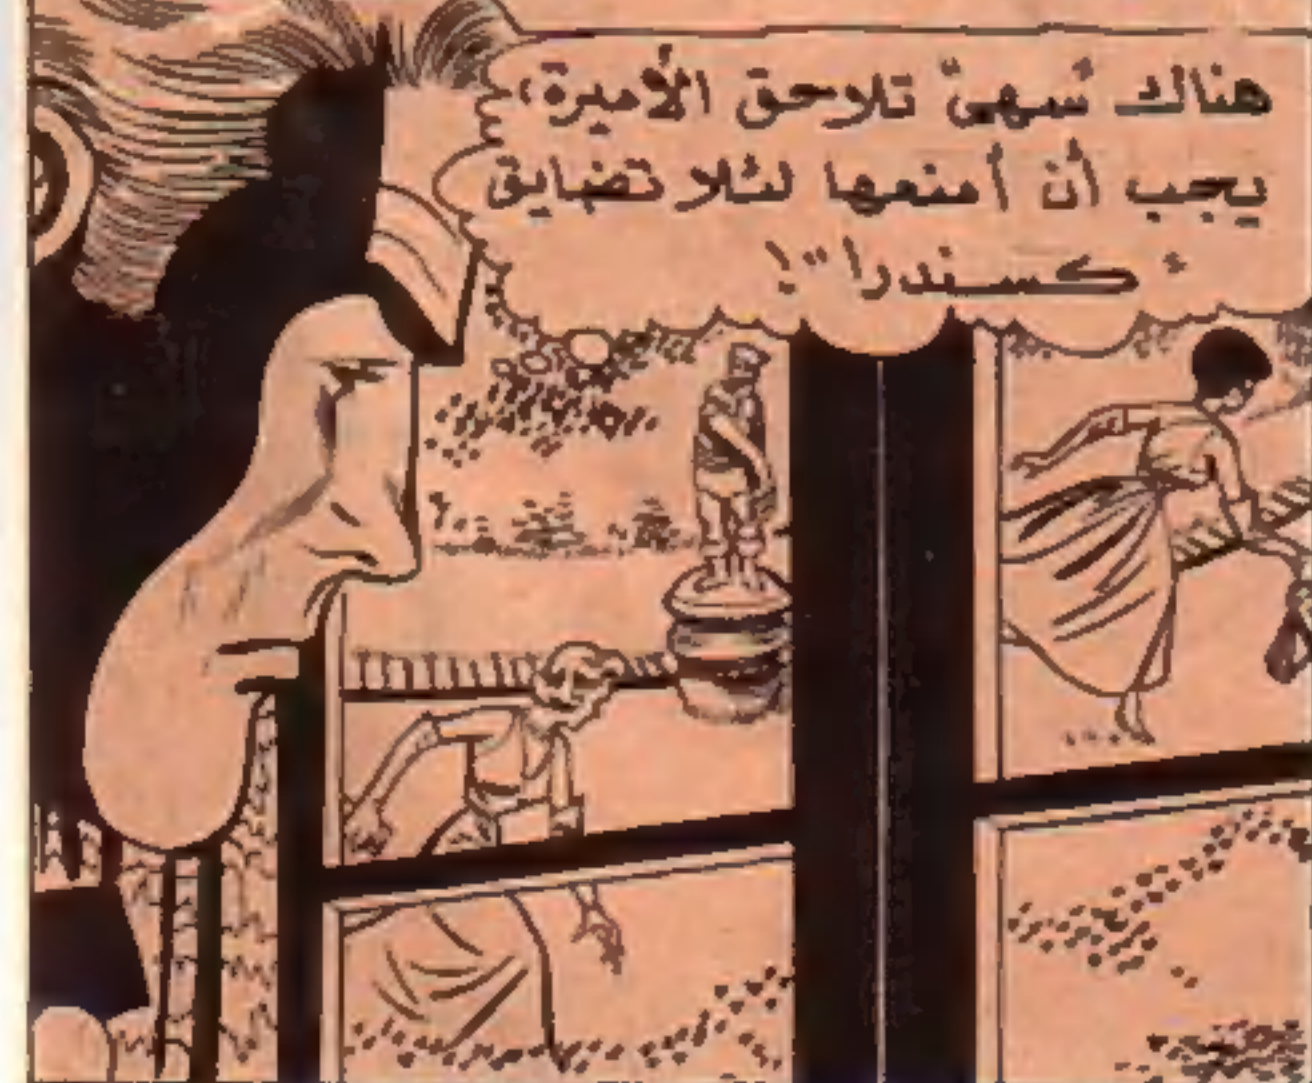 هناك "سهى" تلاحق الأميرة،
يجب أن أمنعها لئلا تضايق
"كسندرا"!